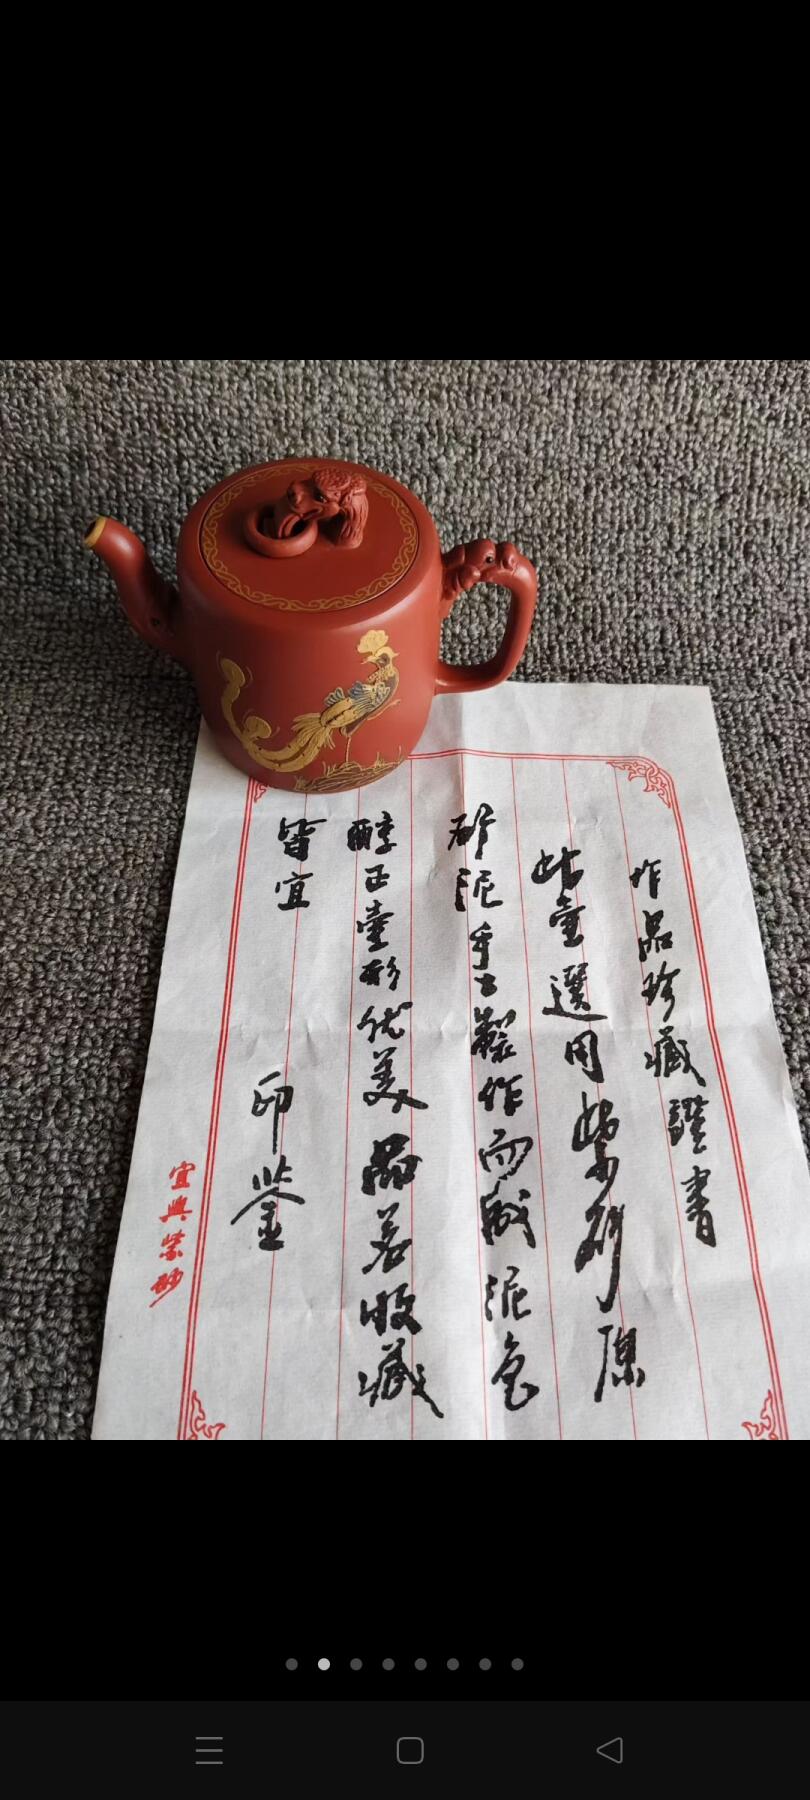 作品珍藏證書
此壺選用紫砂原
砂泥手工製作而成泥色
醇正壺形优美品茗收藏
皆宜
印鉴
宜興紫砂